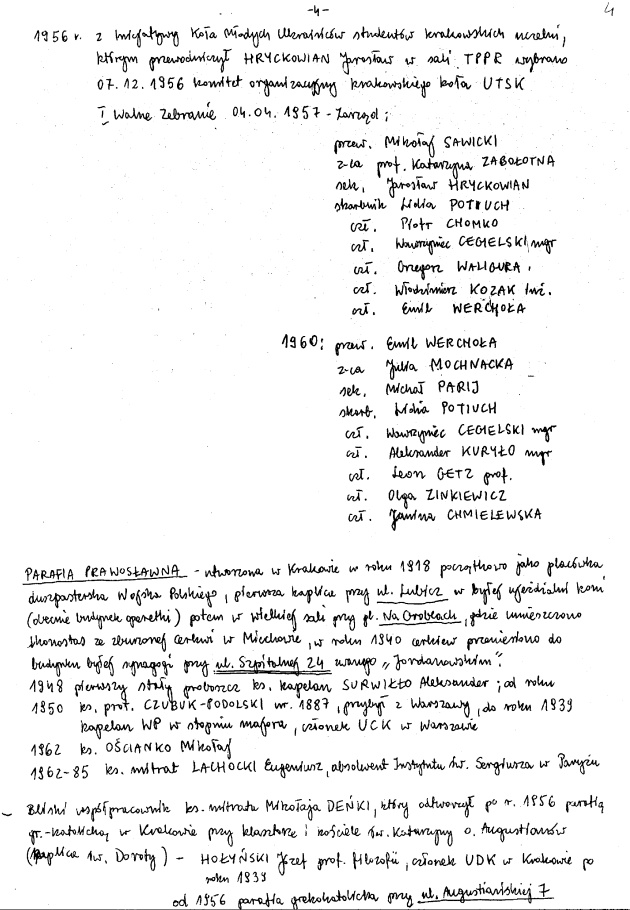 -4-
4
1956 r. z inicjatywy Koła Młodych Ukraińców studentów krakowskich uczelni,
którym przewodniczył HRYCKOWIAN Jarosław w sali TPPR wybrano
07.12.1956 komitet organizacyjny krakowskiego koła UTSK
I Walne Zebranie 04.04.1957 - Zarząd;
przew. Mikołaj SAWICKI
z-ca prof. Katarzyna ZABOŁOTNA
sek. Jarosław HRYCKOWIAN
skarbnik Lidia POTIUCH
czł. Piotr CHOMKO
czł. Wawrzyniec CEGIELSKI mgr
czł. Grzegorz WALIGURA
czł. Włodzimierz KOZAK inż.
czł. Emil WERCHOŁA
1960: przew. Emil WERCHOŁA
z-ca Julia MOCHNACKA
sek. Michał PARIJ
skarb. Lidia POTIUCH
czł. Wawrzyniec CEGIELSKI mgr
czł. Aleksander KURYŁO mgr
czł. Leon GETZ prof.
czł. Olga ZINKIEWICZ
czł. Janina CHMIELEWSKA
PARAFIA PRAWOSŁAWNA - utworzona w Krakowie w roku 1918 początkowo jako placówka
duszpasterska Wojska Polskiego, pierwsza kaplica przy ul. Lubicz w byłej ujeżdżalni koni
(obecnie budynek operetki) potem w wielkiej sali przy pl. Na Groblach, gdzie umieszczono
ikonostas ze zburzonej cerkwi w Miechowie, w roku 1940 cerkiew przeniesiono do
budynku byłej synagogi przy ul. Szpitalnej 24 zwanego "Jordanowskim".
1948 pierwszy stały proboszcz ks. kapelan SURWIŁŁO Aleksander; od roku
1950 ks. prot. CZUBUK-PODOLSKI ur. 1887, przybył z Warszawy, do roku 1939
kapelan WP w stopniu majora, członek UCK w Warszawie
1962 ks. OŚCIANKO Mikołaj
1962-85 ks. mitrat LACHOCKI Eugeniusz, absolwent Instytutu św. Sergiusza w Paryżu
Bliski współpracownik ks. mitrata Mikołaja DEŃKI, który odtworzył po r. 1956 parafię
gr.-katolicką w Krakowie przy klasztorze i kościele św. Katarzyny o. Augustianów
(kaplica św. Doroty) - HOŁYŃSKI Józef prof. filozofii, członek UDK w Krakowie po
roku 1939
od 1956 parafia grekokatolicka przy ul. Augustiańskiej 7